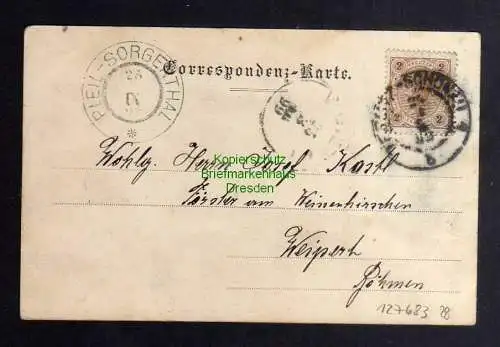 PLEIL-SORGENTHAL
23
IV
*
Correspondenz-Karte.
2 2
99
Kopierschutz
Briefmarkenhaus
Dresden
Wohlg. Herrn Josef Kastl
Förster am
Weipert
Böhmen
127683